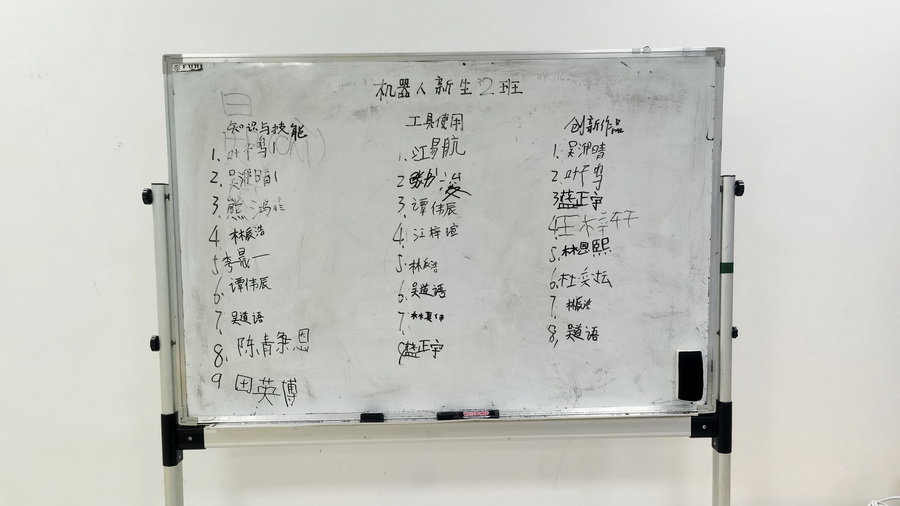 机器人新生2班
知识与技能
1. 叶鸣
2. 吴湘晴
3. 熊鸿
4. 林辰浩
5 李晟一
6. 谭伟辰
7. 吴道语
8. 陈青秉恩
9 田英博
工具使用
1. 江易航
2 浚
3. 谭伟辰
4. 江梓瑄
5. 林辰浩
6. 吴道语
7.
8 蓝正宇
创新作品
1. 吴湘晴
2. 叶鸣
3 蓝正宇
4. 王梓轩
5. 林恩熙
6. 杜奕坛
7. 林辰浩
8, 吴道语